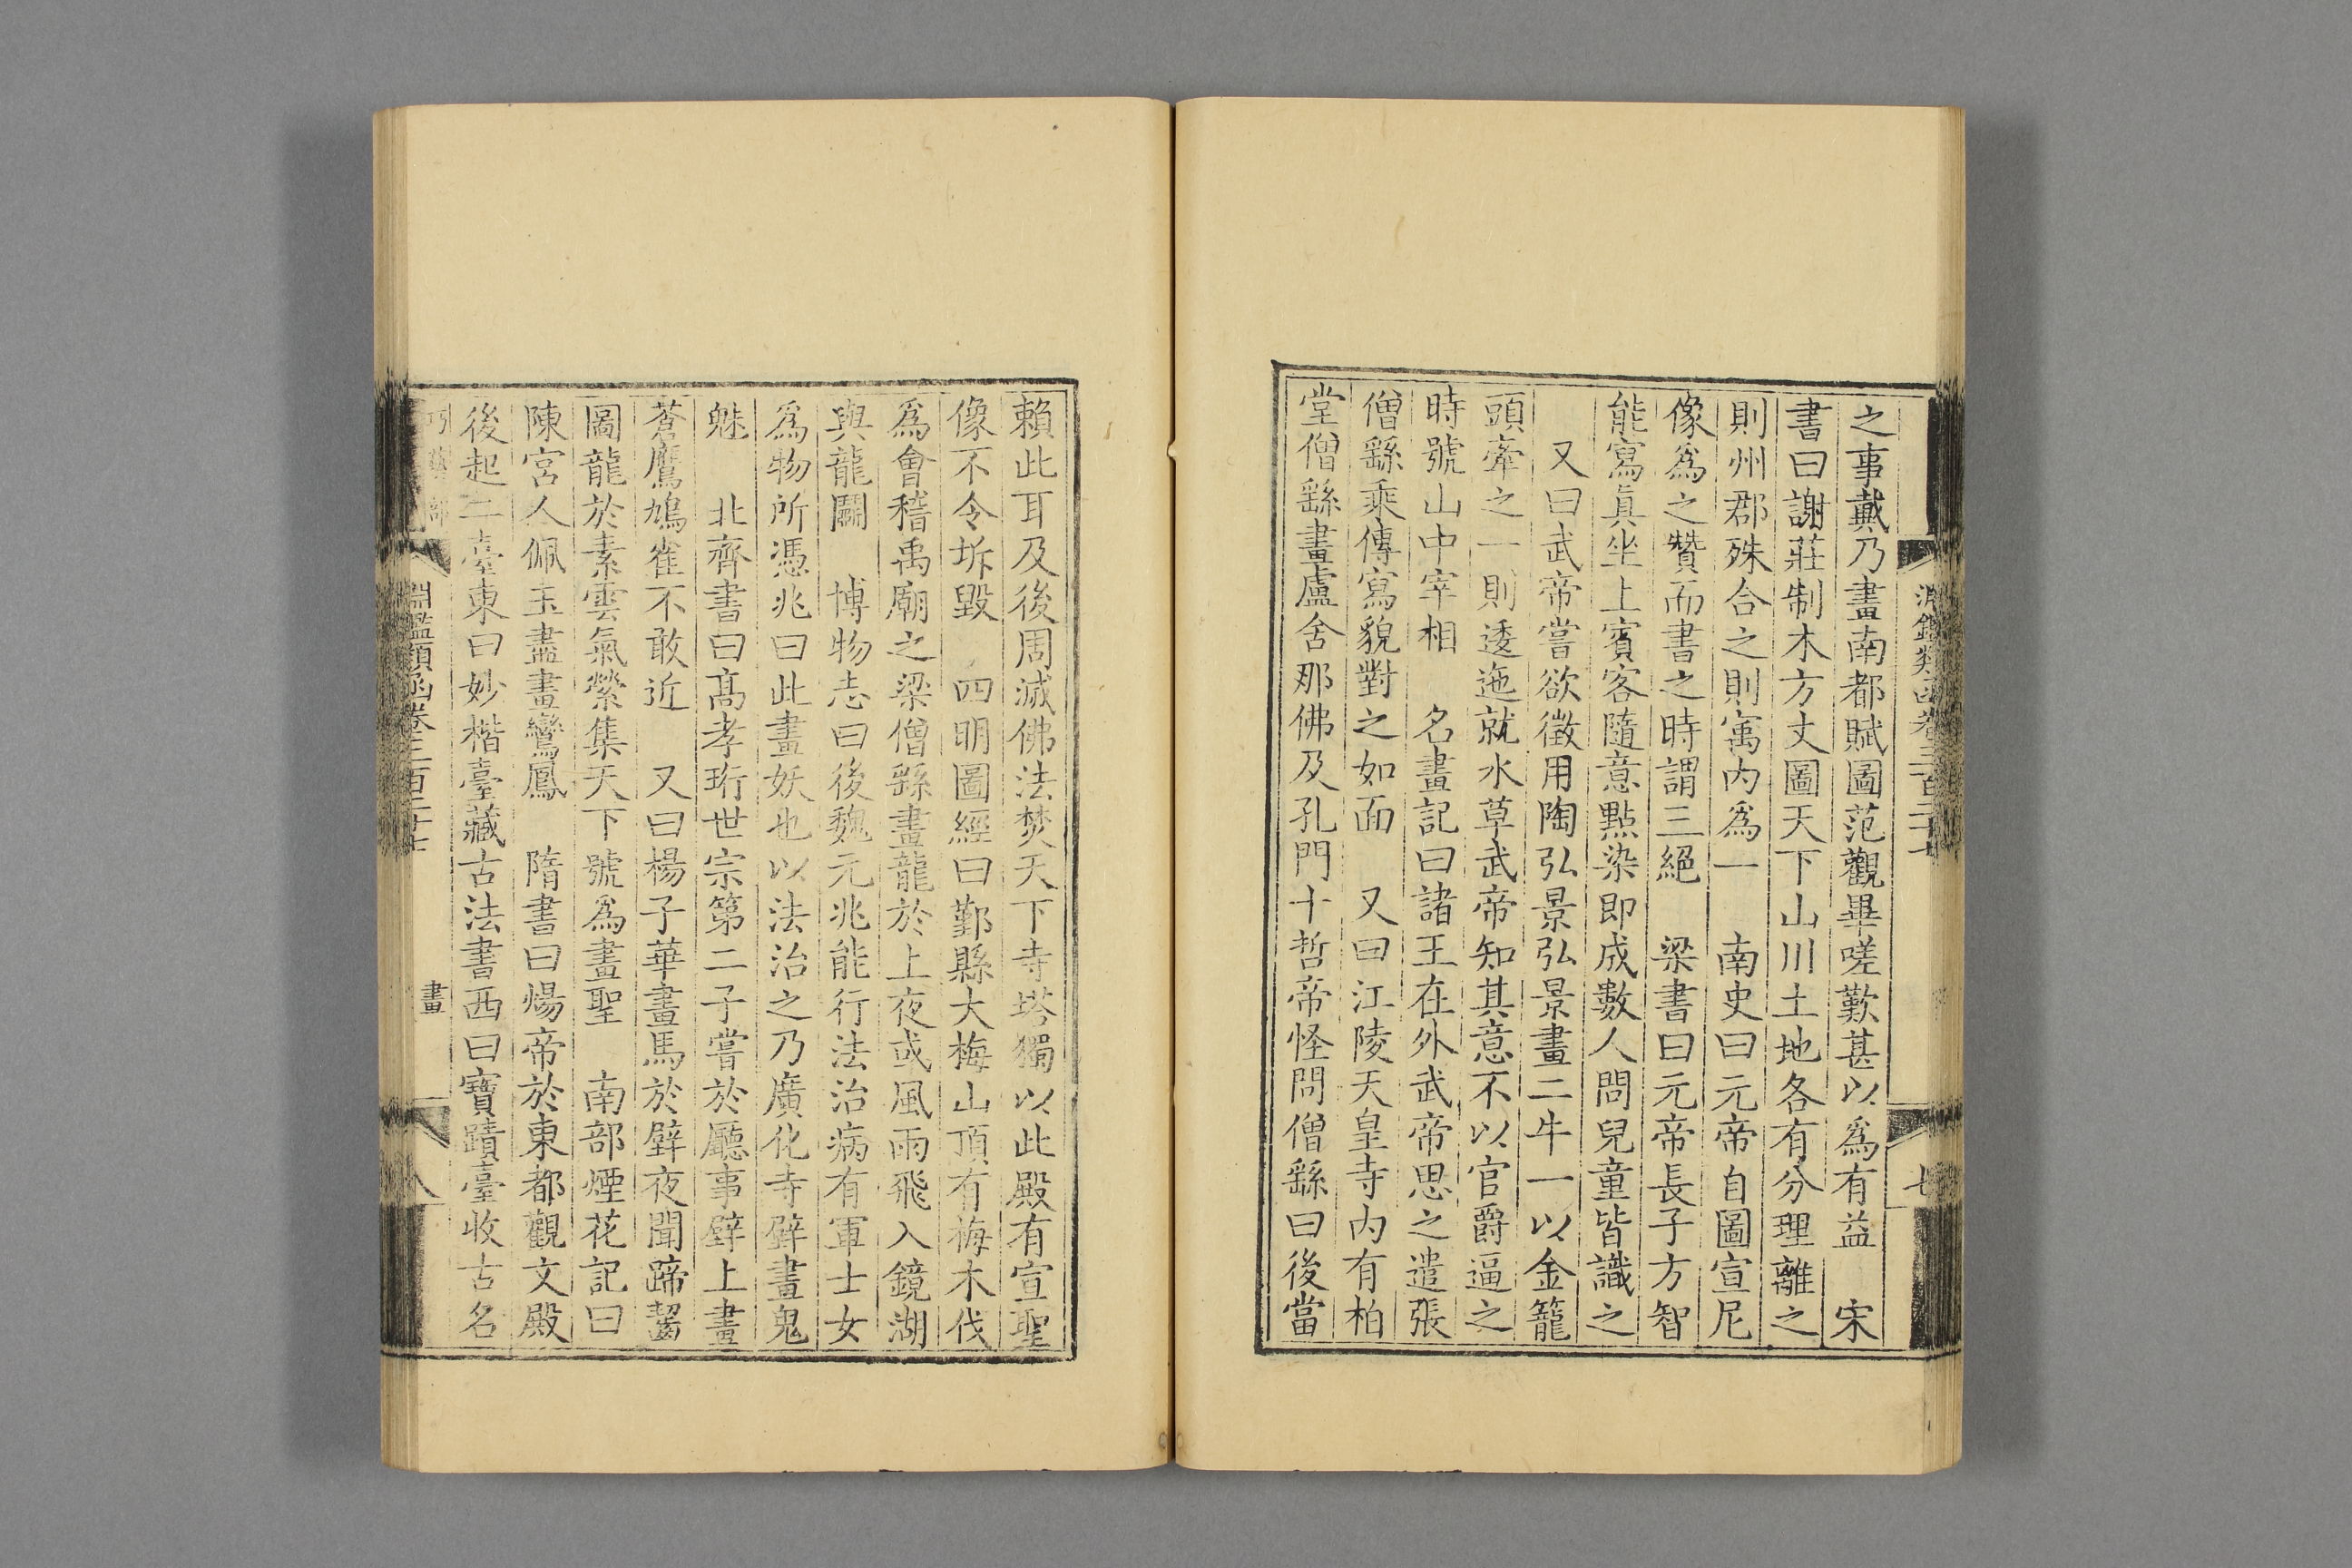 淵鑑類函卷三百二十七
七
之事戴乃畫南都賦圖范觀畢嗟歎甚以爲有益　宋
書曰謝莊制木方丈圖天下山川土地各有分理離之
則州郡殊合之則寓内爲一　南史曰元帝自圖宣尼
像爲之贊而書之時謂三絕　梁書曰元帝長子方智
能寫眞坐上賓客隨意點染即成數人問兒童皆識之
又曰武帝嘗欲徵用陶弘景弘景畫二牛一以金籠
頭牽之一則逶迤就水草武帝知其意不以官爵逼之
時號山中宰相　名畫記曰諸王在外武帝思之遣張
僧繇乘傳寫貌對之如面　又曰江陵天皇寺内有柏
堂僧繇畫盧舍那佛及孔門十哲帝怪問僧繇曰後當
賴此耳及後周滅佛法焚天下寺塔獨以此殿有宣聖
像不令坼毀　四明圖經曰鄞縣大梅山頂有梅木伐
爲會稽禹廟之梁僧繇畫龍於上夜或風雨飛入鏡湖
與龍鬭　博物志曰後魏元兆能行法治病有軍士女
爲物所憑兆曰此畫妖也以法治之乃廣化寺壁畫鬼
魅　北齊書曰高孝珩世宗第二子嘗於廳事壁上畫
蒼鷹鳩雀不敢近　又曰楊子華畫馬於壁夜聞蹄齧
圖龍於素雲氣縈集天下號爲畫聖　南部煙花記曰
陳宮人佩玉盡畫鸞鳳　隋書曰煬帝於東都觀文殿
後起二臺東曰妙楷臺藏古法書西曰寶蹟臺收古名
巧藝部
淵鑑類函卷三百二十七
畫
八